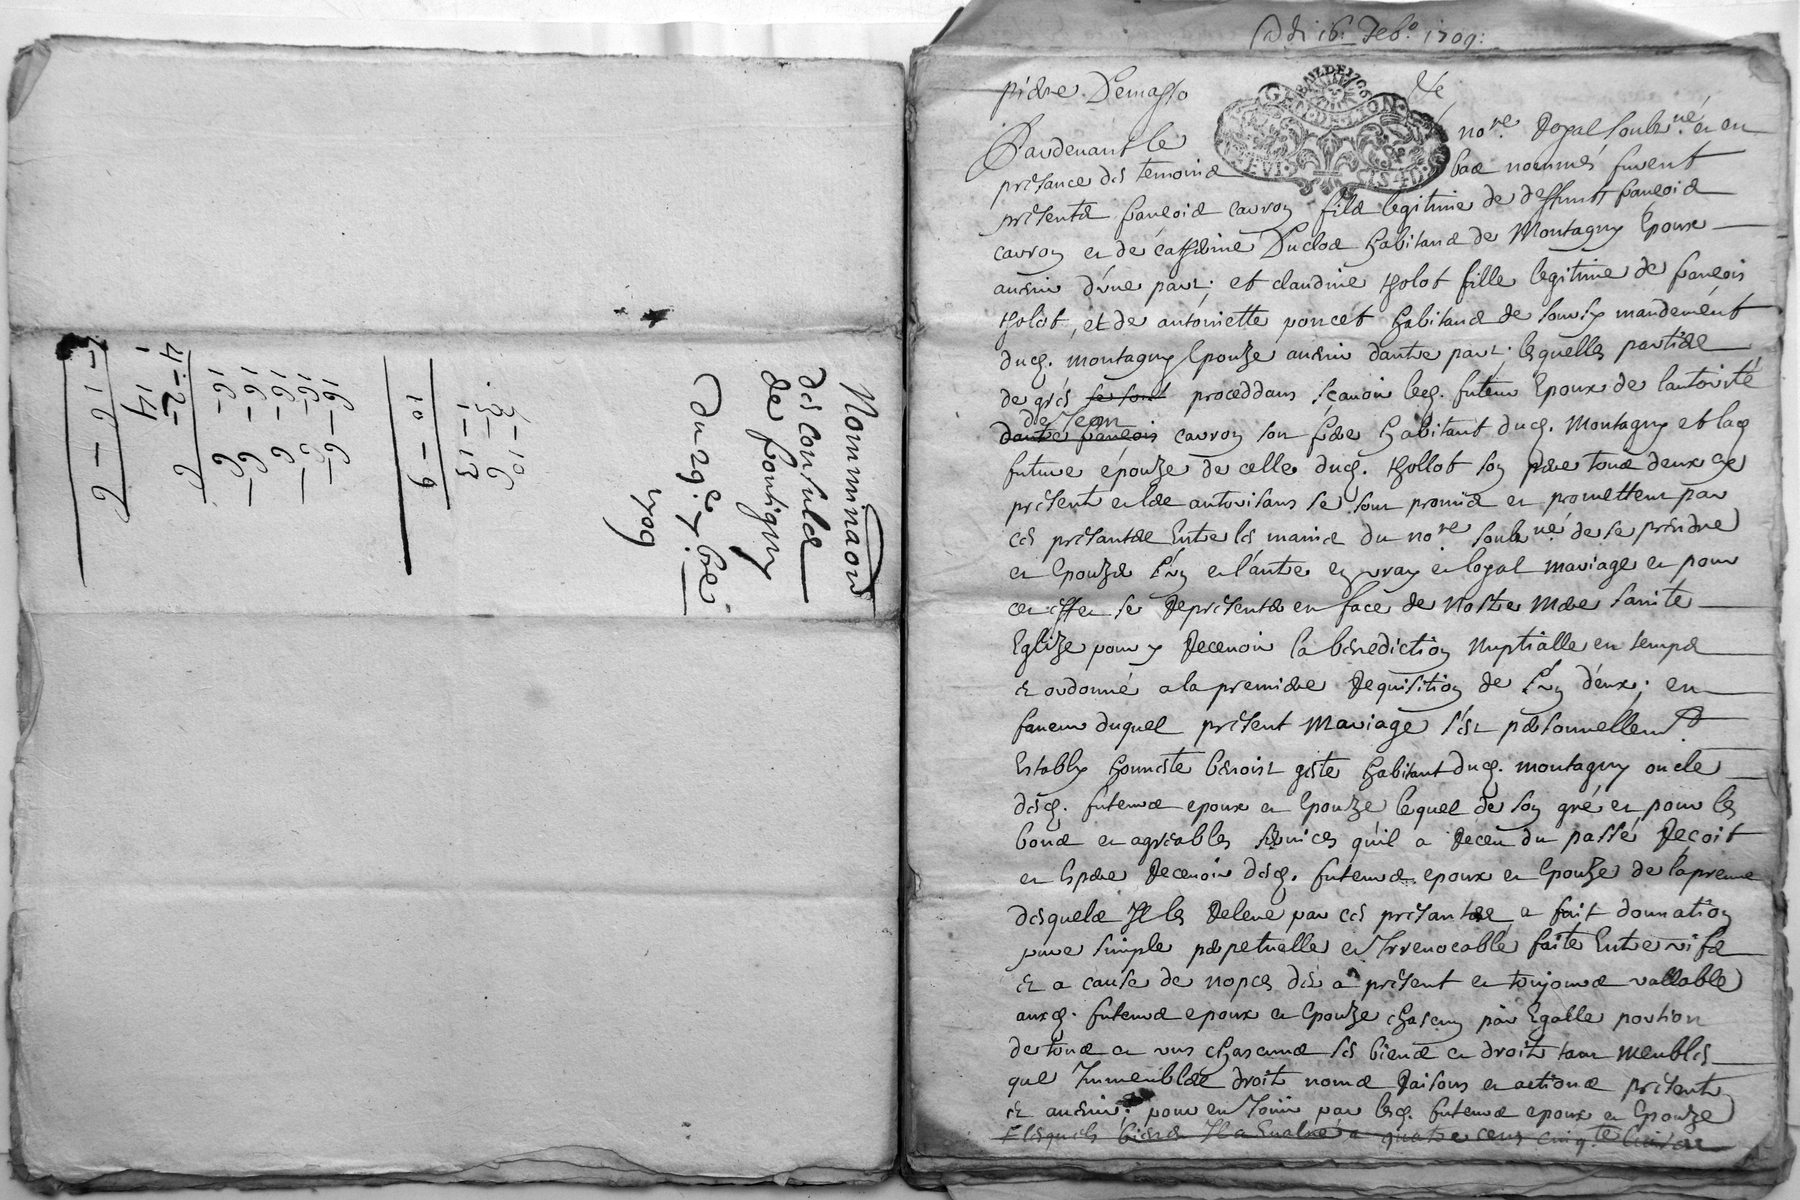 Nomminaons
des consulz
de fontigny
Du 29e xbre
1709
7-10-6
3-
1-13
10-9
16-9-
16-9-
16-9-
16-9-
16-9-
4-2-6
14
2-16-2
Adi 16 Feb.o 1709:
GEN. DE LYON
piere Demasso
Pardevant le no.re Royal soubz.né et en
présance des temoins bas nommés furent
présents francois cavroy fils legitime de deffunt francois
cavroy et de catherine Duclos habitans de Montagny Epoux
auenir d'vne part; et claudine tholot fille legitime de francois
tholot, et de antoinette poncet habitans de sourzy mandement
dud. montagny Epouze auenir dautre part; lesquelles parties
de grés se sont proceddans sçauoir led. futeur Epoux de lautorité
de Jean
dautre francois cavroy son frere habitant dud. Montagny et lad
future épouze de celle dud. thollot son pere tous deux cy
présent et les autorisans se sont promis et promettent par
ces présantes Entre les mains du no.re soubz.né de se prendre
et Epouzer l'vn et l'autre en vray et loyal mariage et pour
cet effet se Représenter en face de Nostre Mere sainte
Eglize pour y Receuoir la bénediction Nuptialle en temps
et ordonné a la premiere Requisition de l'vn d'eux; en
faueur duquel présent Mariage s'est personnellem.t
Estably honneste benoist giste habitant dud. montagny oncle
desd. futeurs epoux et Epouze, lequel de son gré et pour les
bons et agréables seruices qu'il a Receu du passé Reçoit
et Espere Receuoir desd. futeurs epoux et Epouze de la preuue
desquels Il les Releue par ces présantes, a fait donnation
pure simple perpetuelle et Irreuocable faite Entre vifs
et a cause de nopces dés a présent et toujours vallable
auxd. futeurs epoux et Epouze chascun par Egalle portion
de tous et vns chascuns ses biens et droits tant Meubles
que Immeubles droit noms Raisons et actions présent
et auenir; pour en Jouir par lesd. futeurs epoux et Epouze
lesquels biens Il a Eualué a quatre cens cinq.te liures